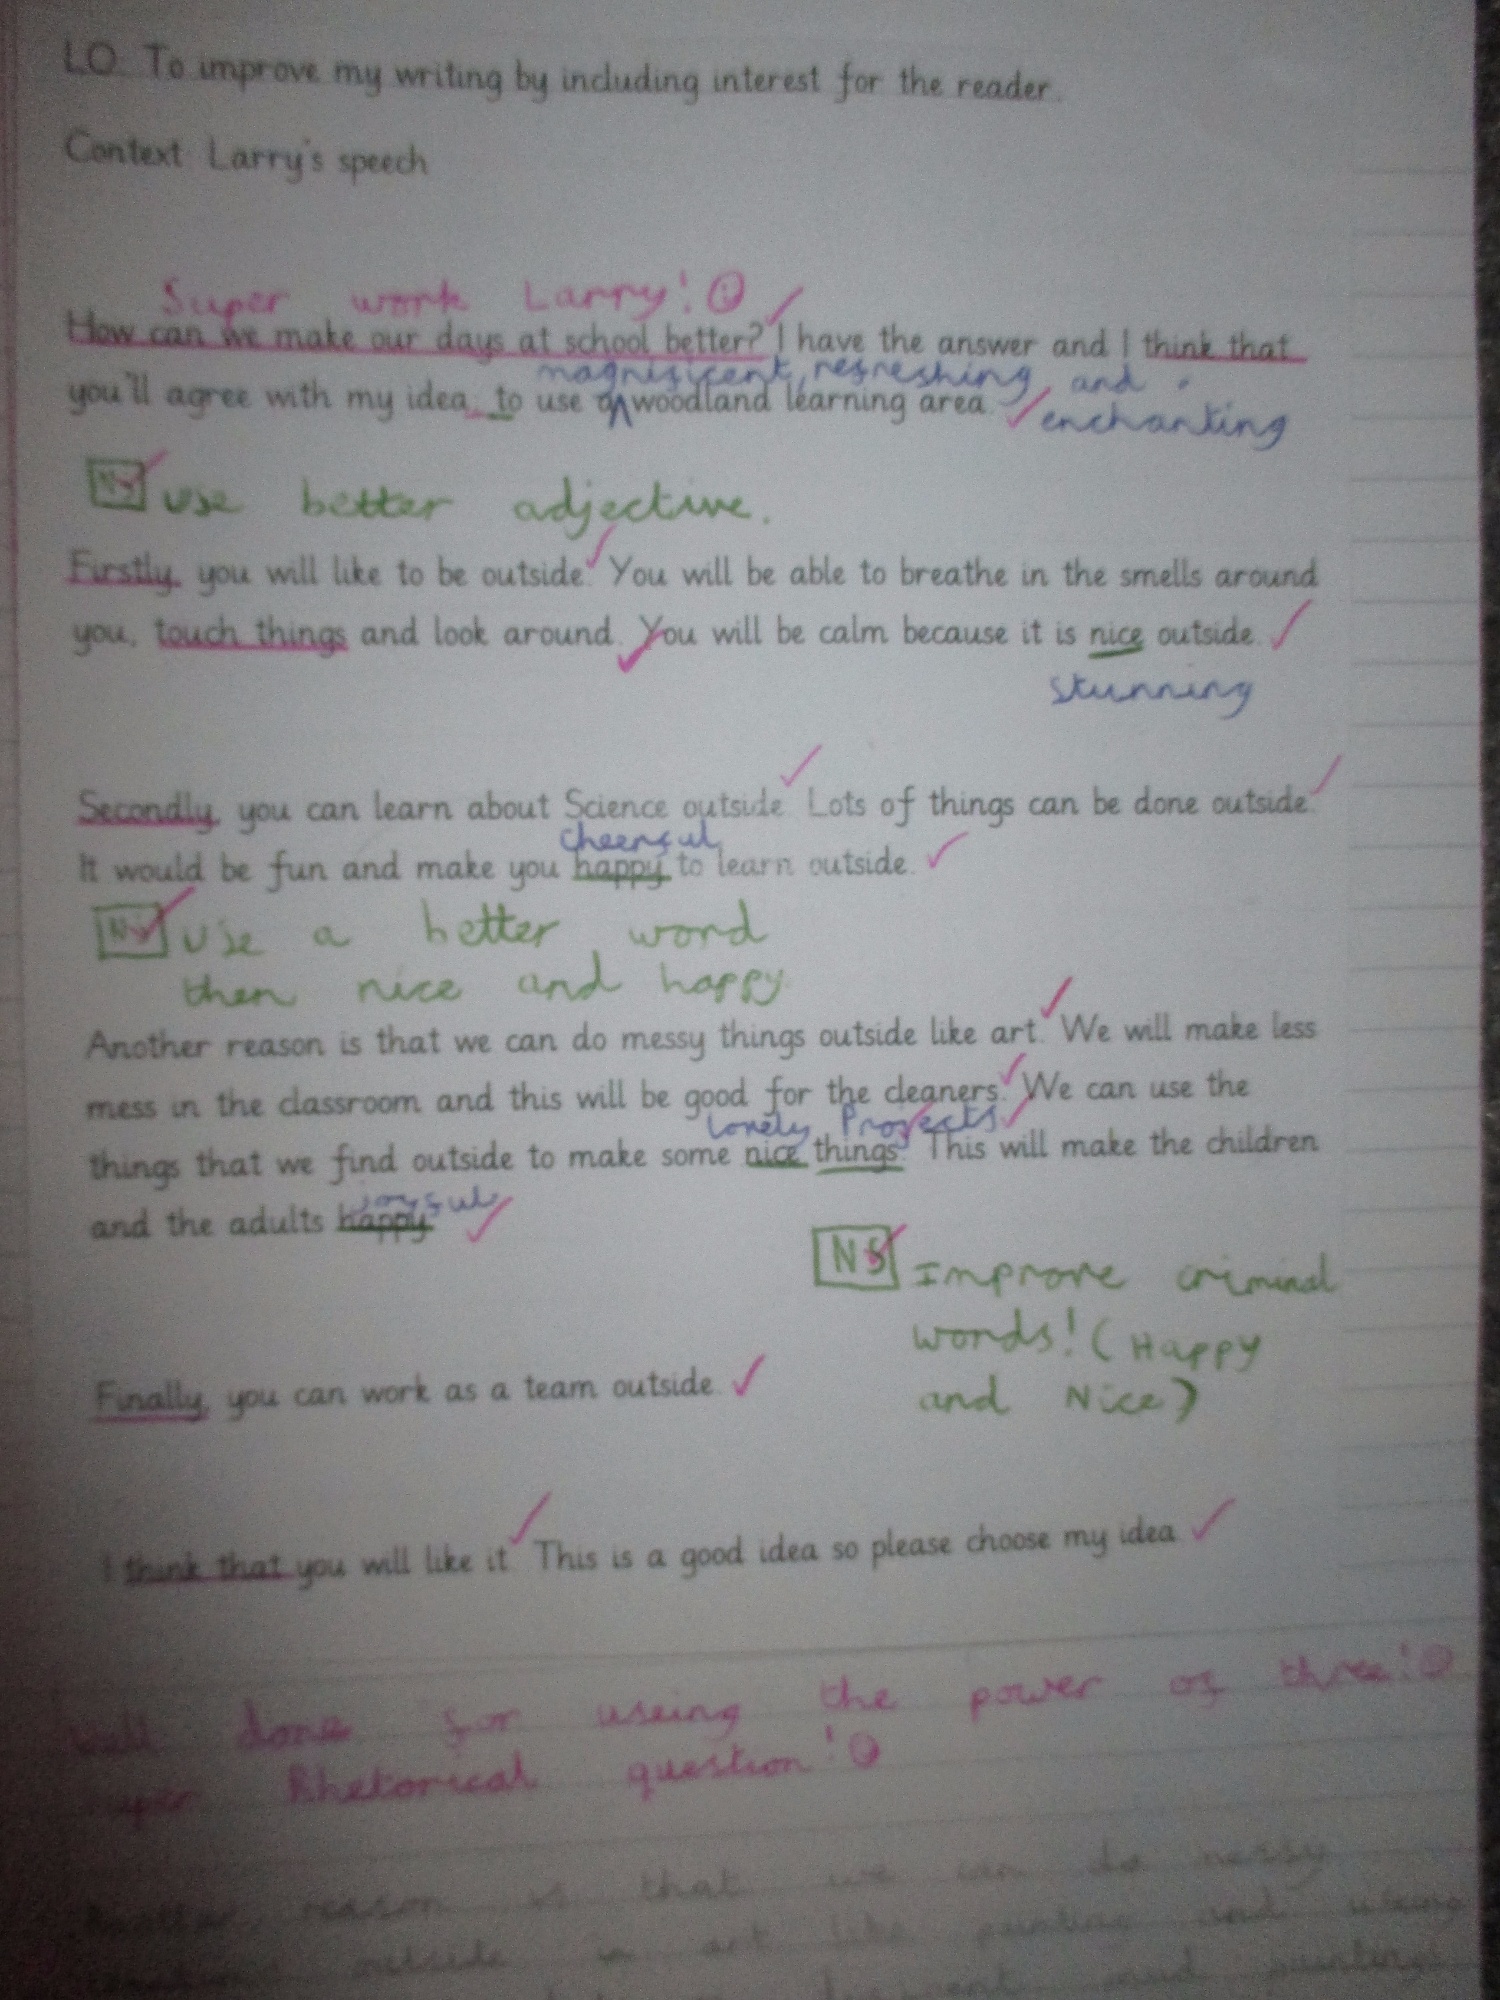 LO. To improve my writing by including interest for the reader.
Context: Larry's speech
Super work Larry!
How can we make our days at school better? I have the answer and I think that
magnificent, refreshing, and
you'll agree with my idea: to use a woodland learning area.
enchanting
NS use better adjective.
Firstly, you will like to be outside. You will be able to breathe in the smells around
you, touch things and look around. You will be calm because it is nice outside.
stunning
Secondly, you can learn about Science outside. Lots of things can be done outside.
cheerful
It would be fun and make you happy to learn outside.
NS use a better word
then nice and happy
Another reason is that we can do messy things outside like art. We will make less
mess in the classroom and this will be good for the cleaners. We can use the
lovely Projects
things that we find outside to make some nice things. This will make the children
joyful
and the adults happy.
NS Improve criminal
words! (Happy
and Nice)
Finally, you can work as a team outside.
I think that you will like it. This is a good idea so please choose my idea.
Well done for useing the power of three!
Rhetorical question!
reason is that we can do messy
outside in art like painting and using
and paintings